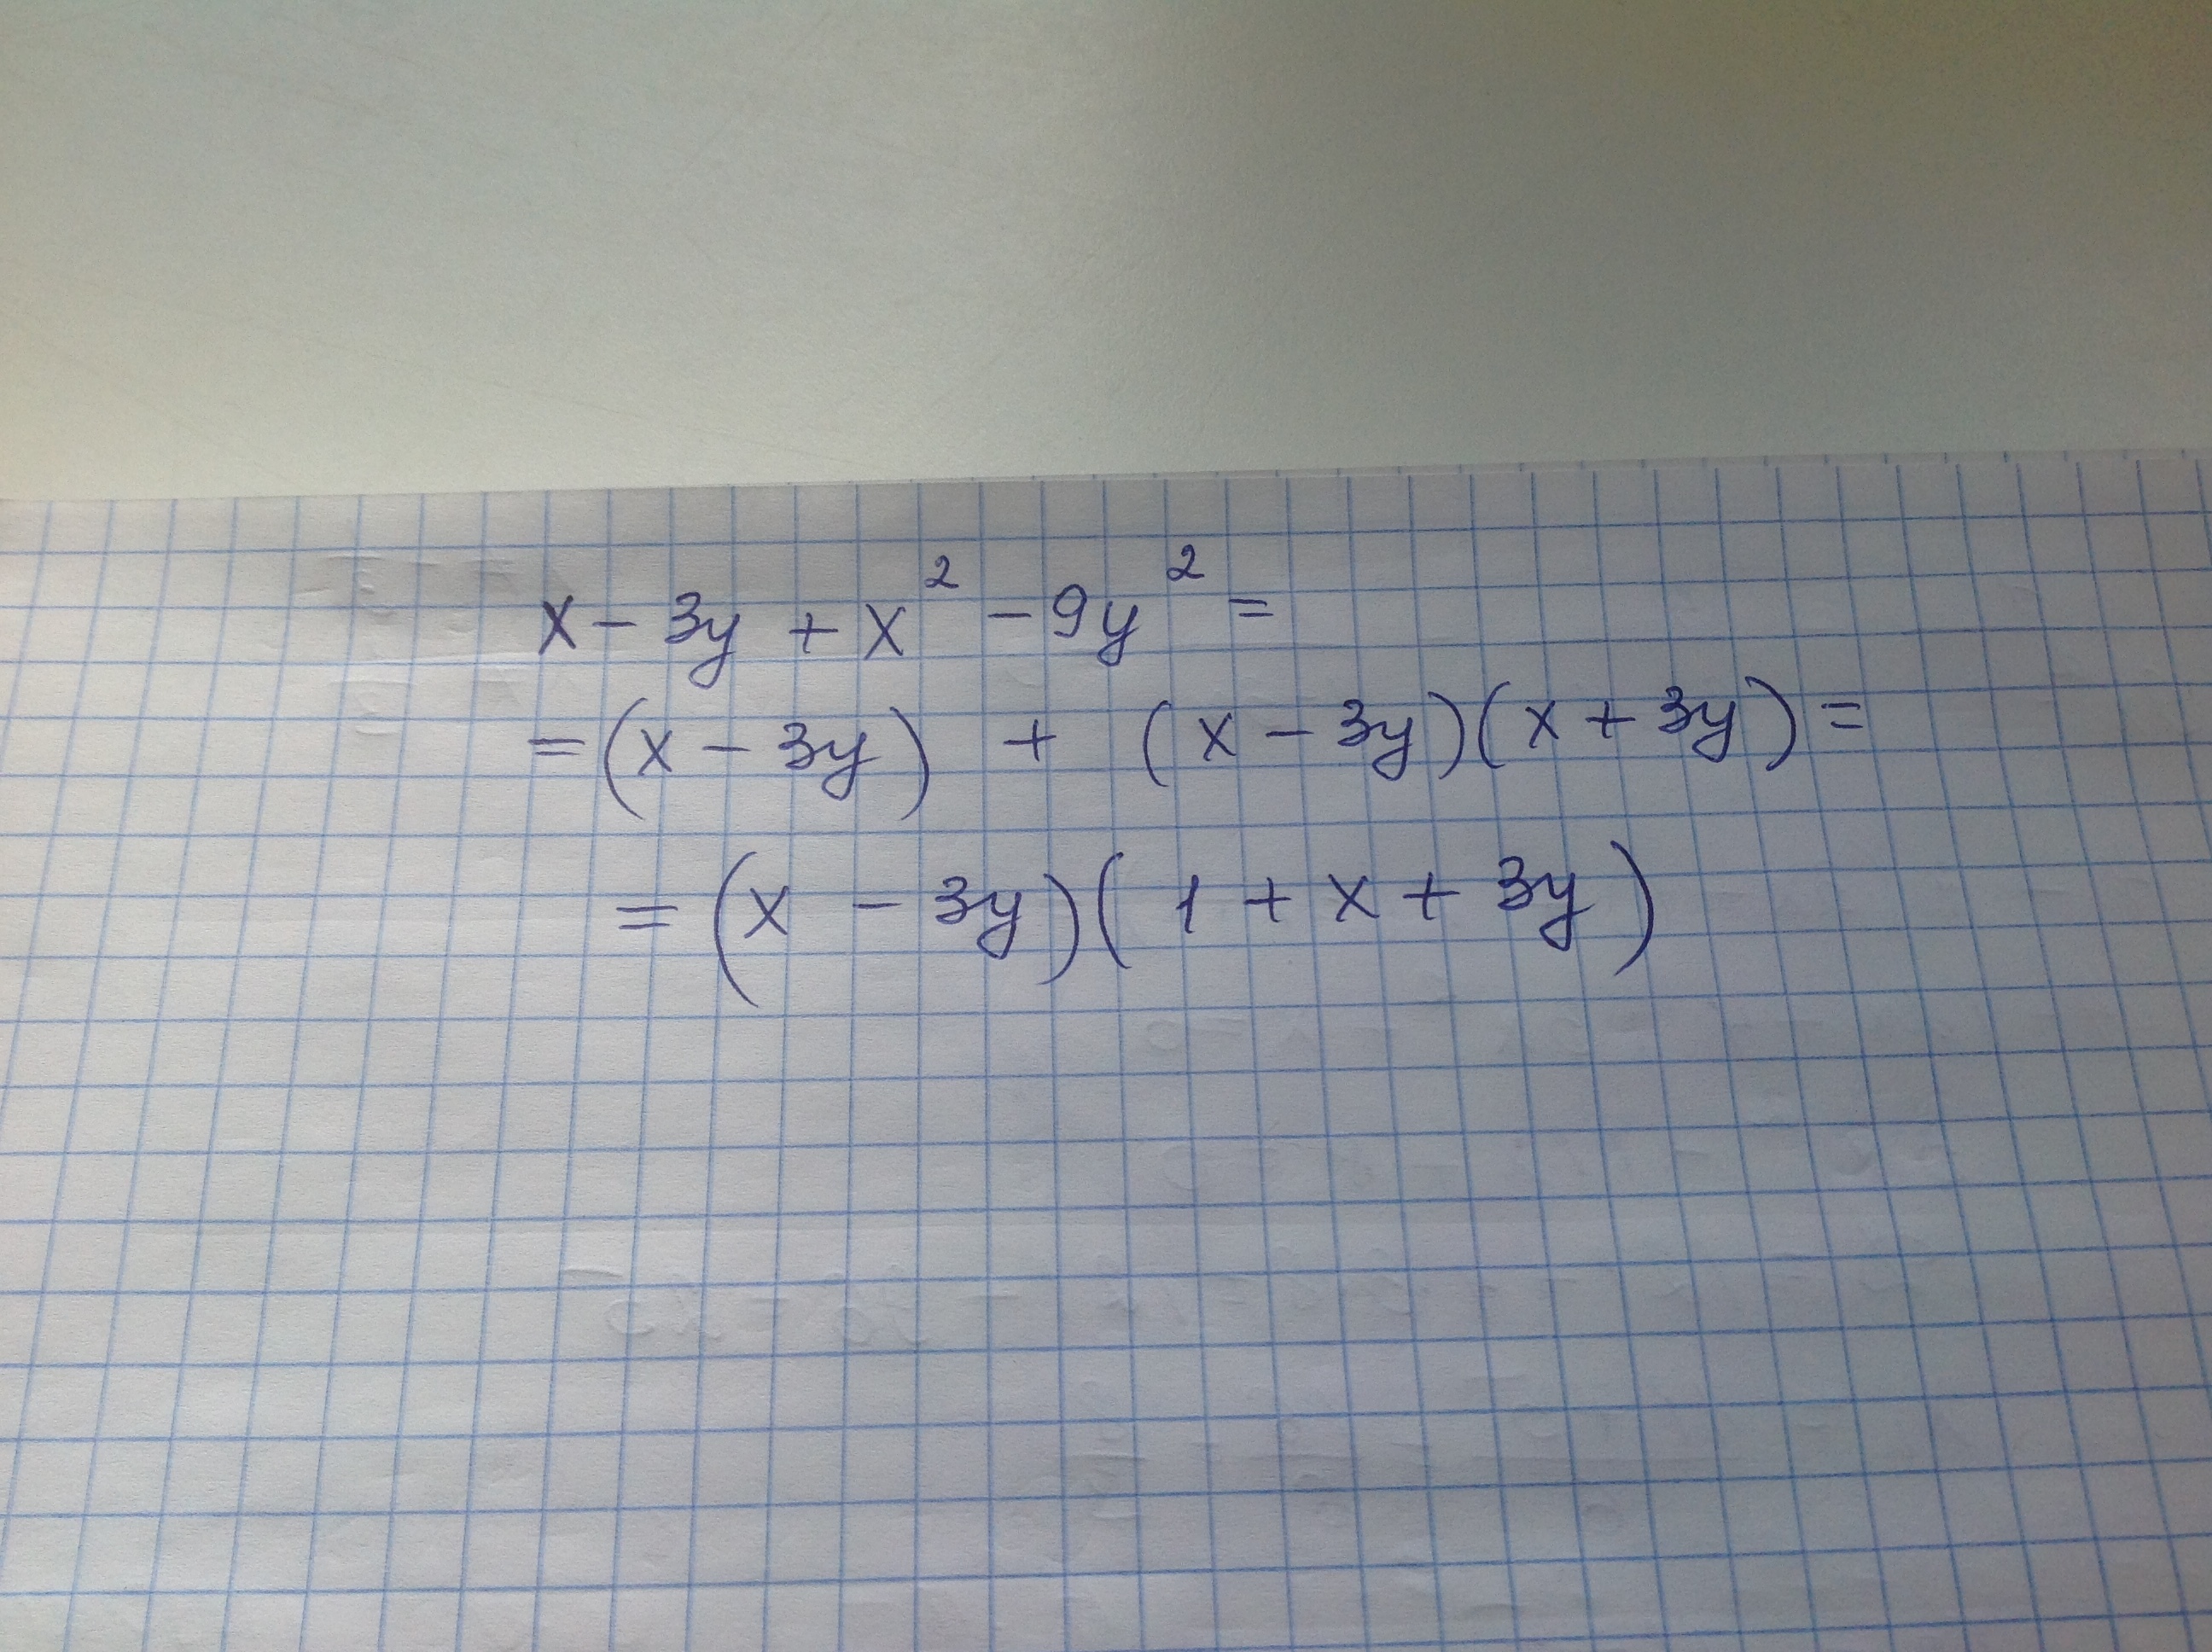 x - 3y + x² - 9y² =
= (x - 3y) + (x - 3y)(x + 3y) =
= (x - 3y)(1 + x + 3y)